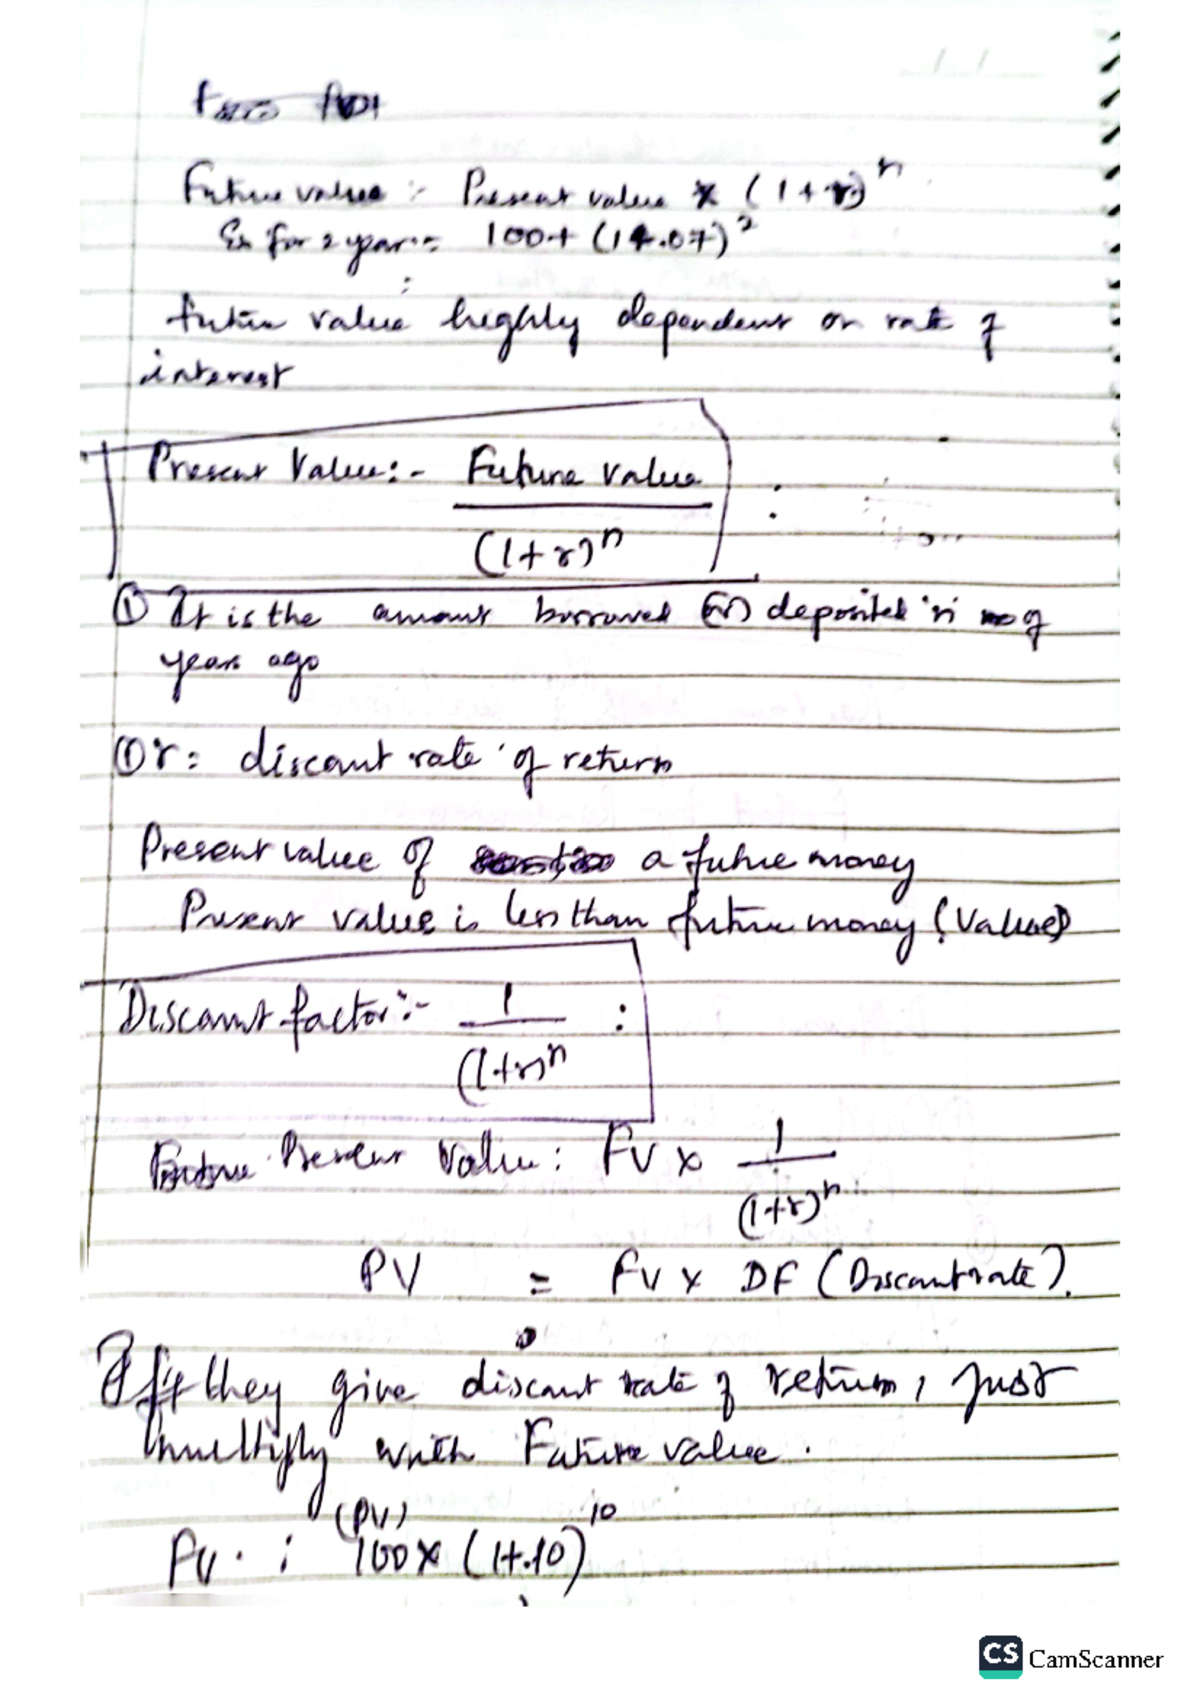 Future value :- Present value * (1+r)^n
Ex for 2 year := 100+ (1+.07)^2
:
future value highly dependent on rate of
interest
Present Value:- Future value
(1+r)^n
:
① It is the amount borrowed (or) deposited 'n' no of
years ago
① r: discount rate of return
Present value of a future money
Present value is less than future money (Value)
Discount factor:- 1 :
(1+r)^n
Present Value: FV x 1
(1+r)^n
PV = FV x DF (Discount rate).
If they give discount rate of return, just
multiply with Future value.
(PV)
FV. : 100x (1+.10)^10
CS CamScanner